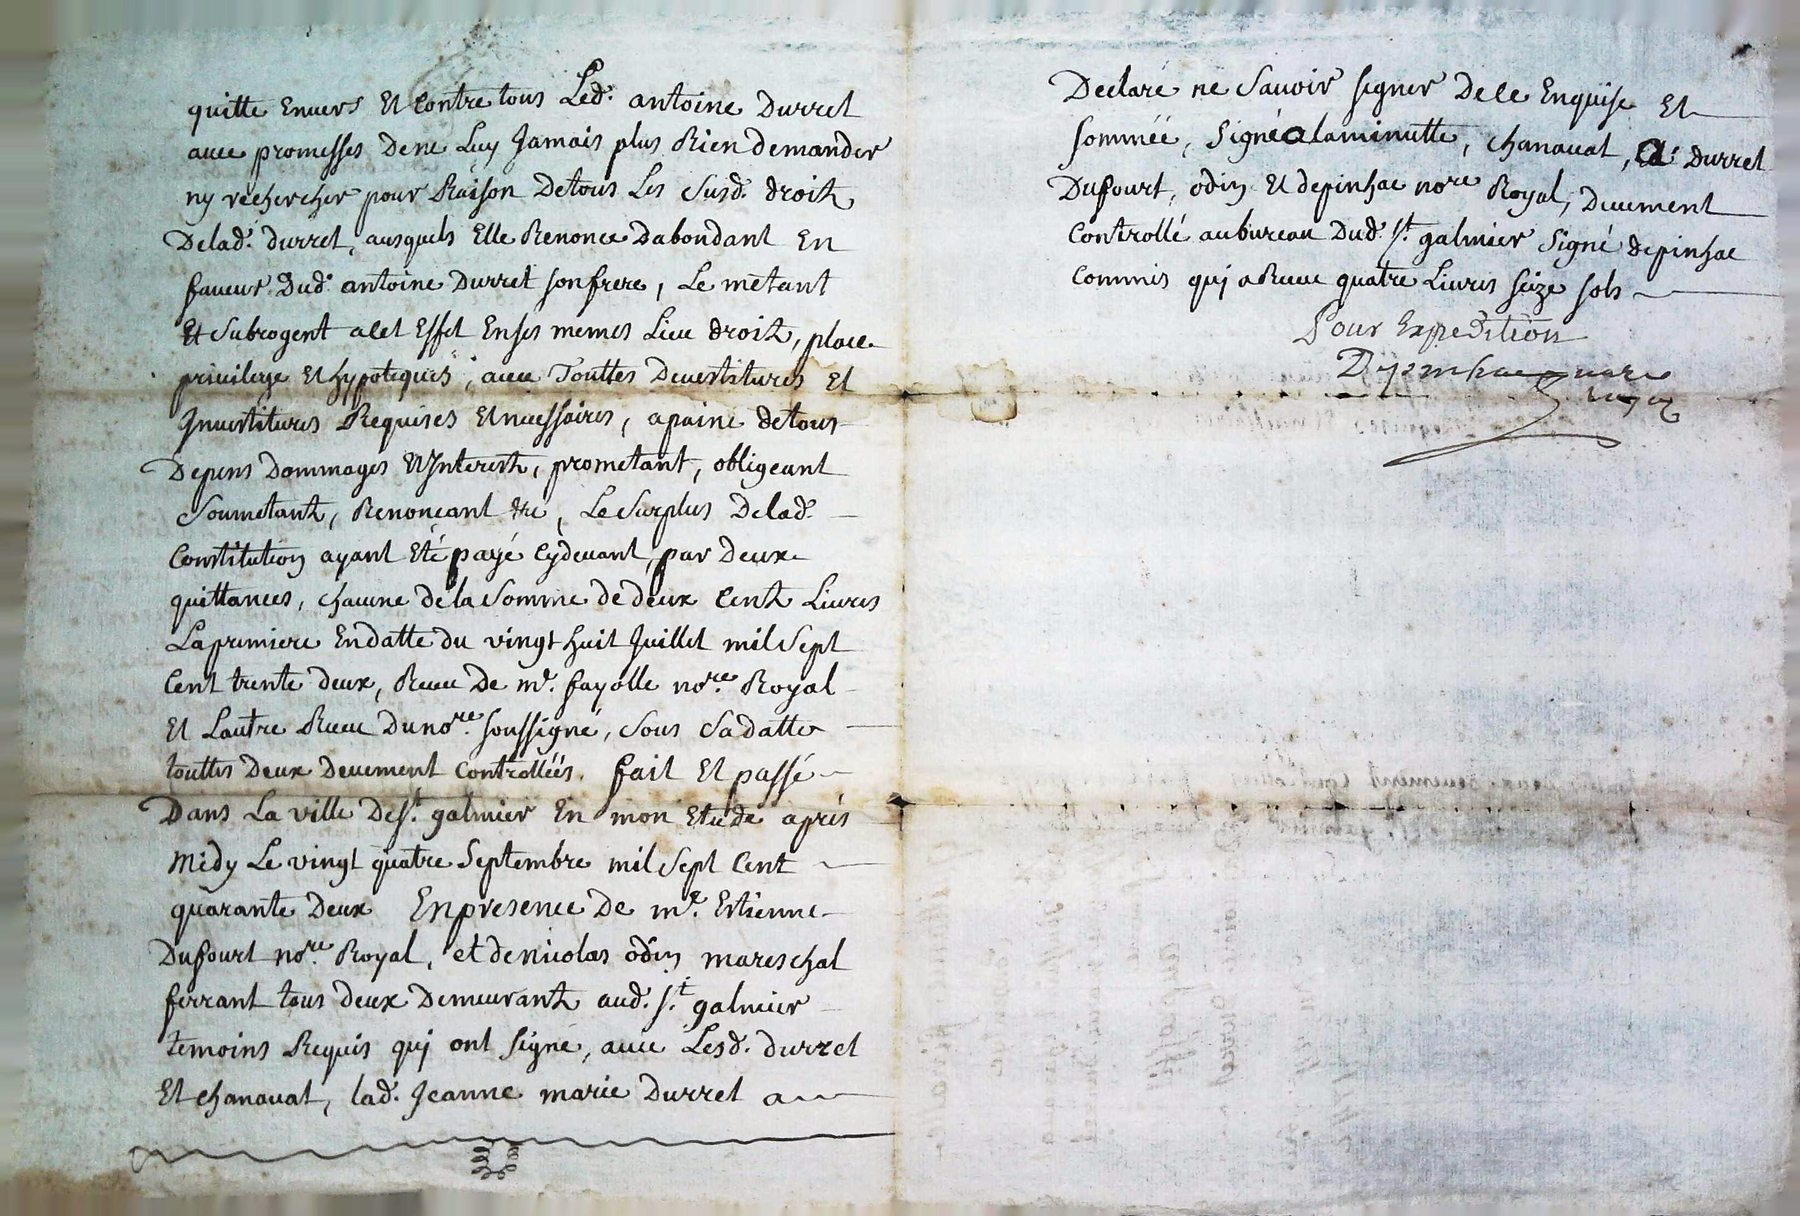 quitte Envers Et Contre tous Led. antoine Durret
avec promesses De ne Luy Jamais plus Rien demander
ny rechercher pour Raison De tous Les Susd. droits
De lad. durret, ausquels Elle Renonce Dabondant En
faveur Dud. antoine Durret son frere, Le metant
Et Subrogent a cet Effet En ses memes Lieu droits, place
privilege Et hypoteques, avec Touttes Devestitures Et
Investitures Requises Et necessaires, a paine de tous
Depens Dommages Et Interests, prometant, obligeant
Soumetants, Renonceant &re, Le Surplus De lad.
Constitution ayant Eté payé Cydevant, par Deux
quittances, chacune de la Somme de deux Cents Livres
La premiere En datte du vingt huit Juillet mil Sept
Cent trente deux, Receue De mr. fayolle nore. Royal
Et Lautre Receue Du nore. Soussigné, Sous Sa datte
touttes Deux Deuement Controlléés. fait Et passé
Dans La ville De st. galmier En mon Etude aprés
Midy Le vingt quatre Septembre mil Sept Cent
quarante Deux En presence De mr. Estienne
Dufourt nore. Royal, et de nicolas odin mareschal
ferrant tous deux Demeurants aud. st. galmier
temoins Requis qui ont Signé, avec Lesd. durret
Et chanavat, lad. Jeanne marie Durret a
Declaré ne Savoir signer De ce Enquise Et
sommée, Signé a la minutte, chanavat, A. durret
Dufourt, odin Et depinhac nore Royal, Deuement
Controllé au bureau Dud. st. galmier Signé depinhac
Commis qui a Receu quatre Livres seize sols
Pour Expedition
Depinhac nore
Royal